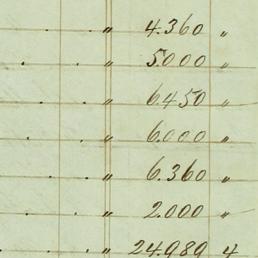 . " 4.360 "
. . " 5.000 "
. . " 6.450 "
. . " 6.000 "
. . " 6.360 "
. . " 2.000 "
. . " 24.989 4